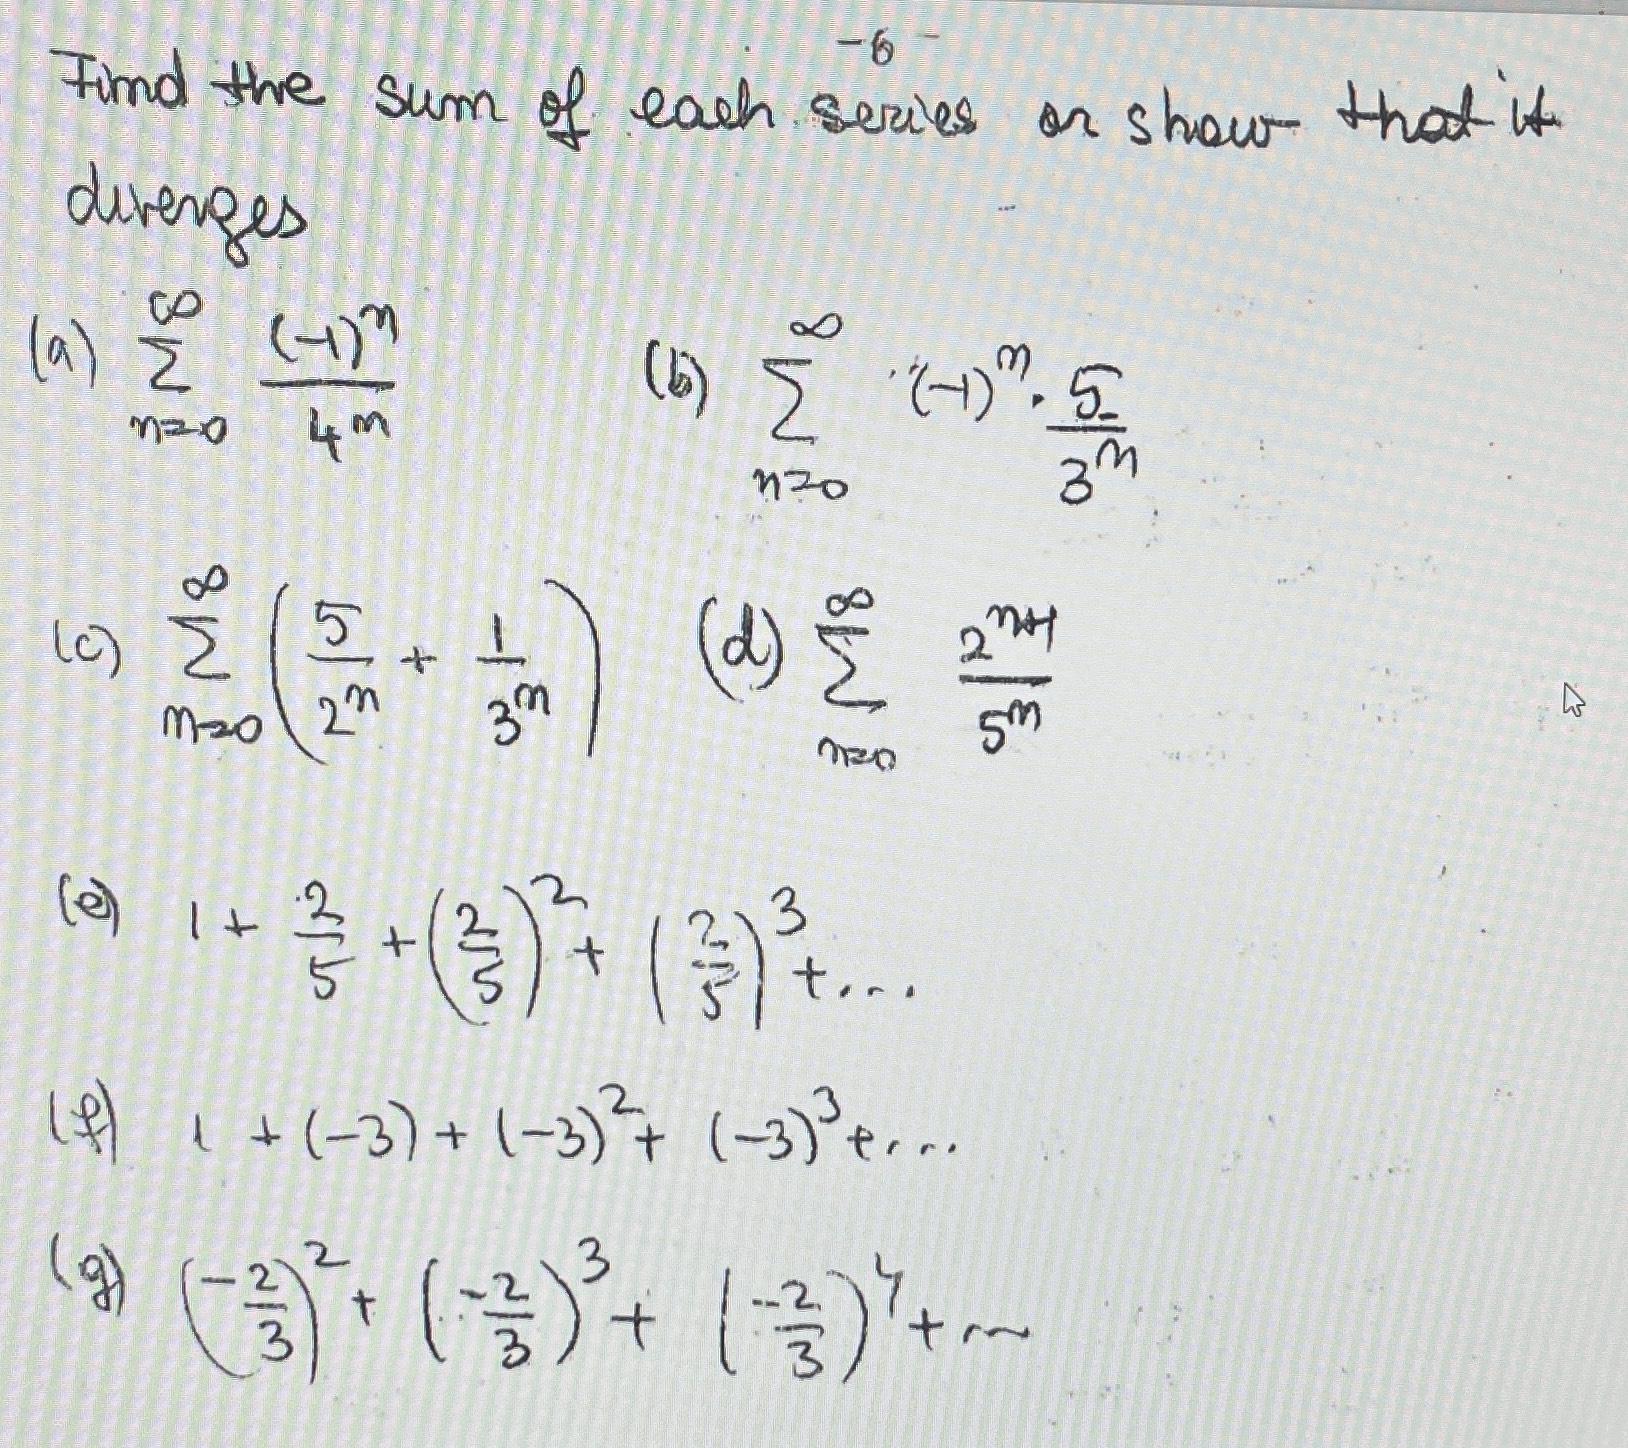 -6-
Find the sum of each series or show that it
diverges
(a) ∑_{n=0}^{∞} (-1)^n / 4^n (b) ∑_{n=0}^{∞} (-1)^n · 5 / 3^n
(c) ∑_{n=0}^{∞} (5/2^n + 1/3^n) (d) ∑_{n=0}^{∞} 2^{n+1} / 5^n
(e) 1 + 2/5 + (2/5)^2 + (2/5)^3 + ...
(f) 1 + (-3) + (-3)^2 + (-3)^3 + ...
(g) (-2/3)^2 + (-2/3)^3 + (-2/3)^4 + ...